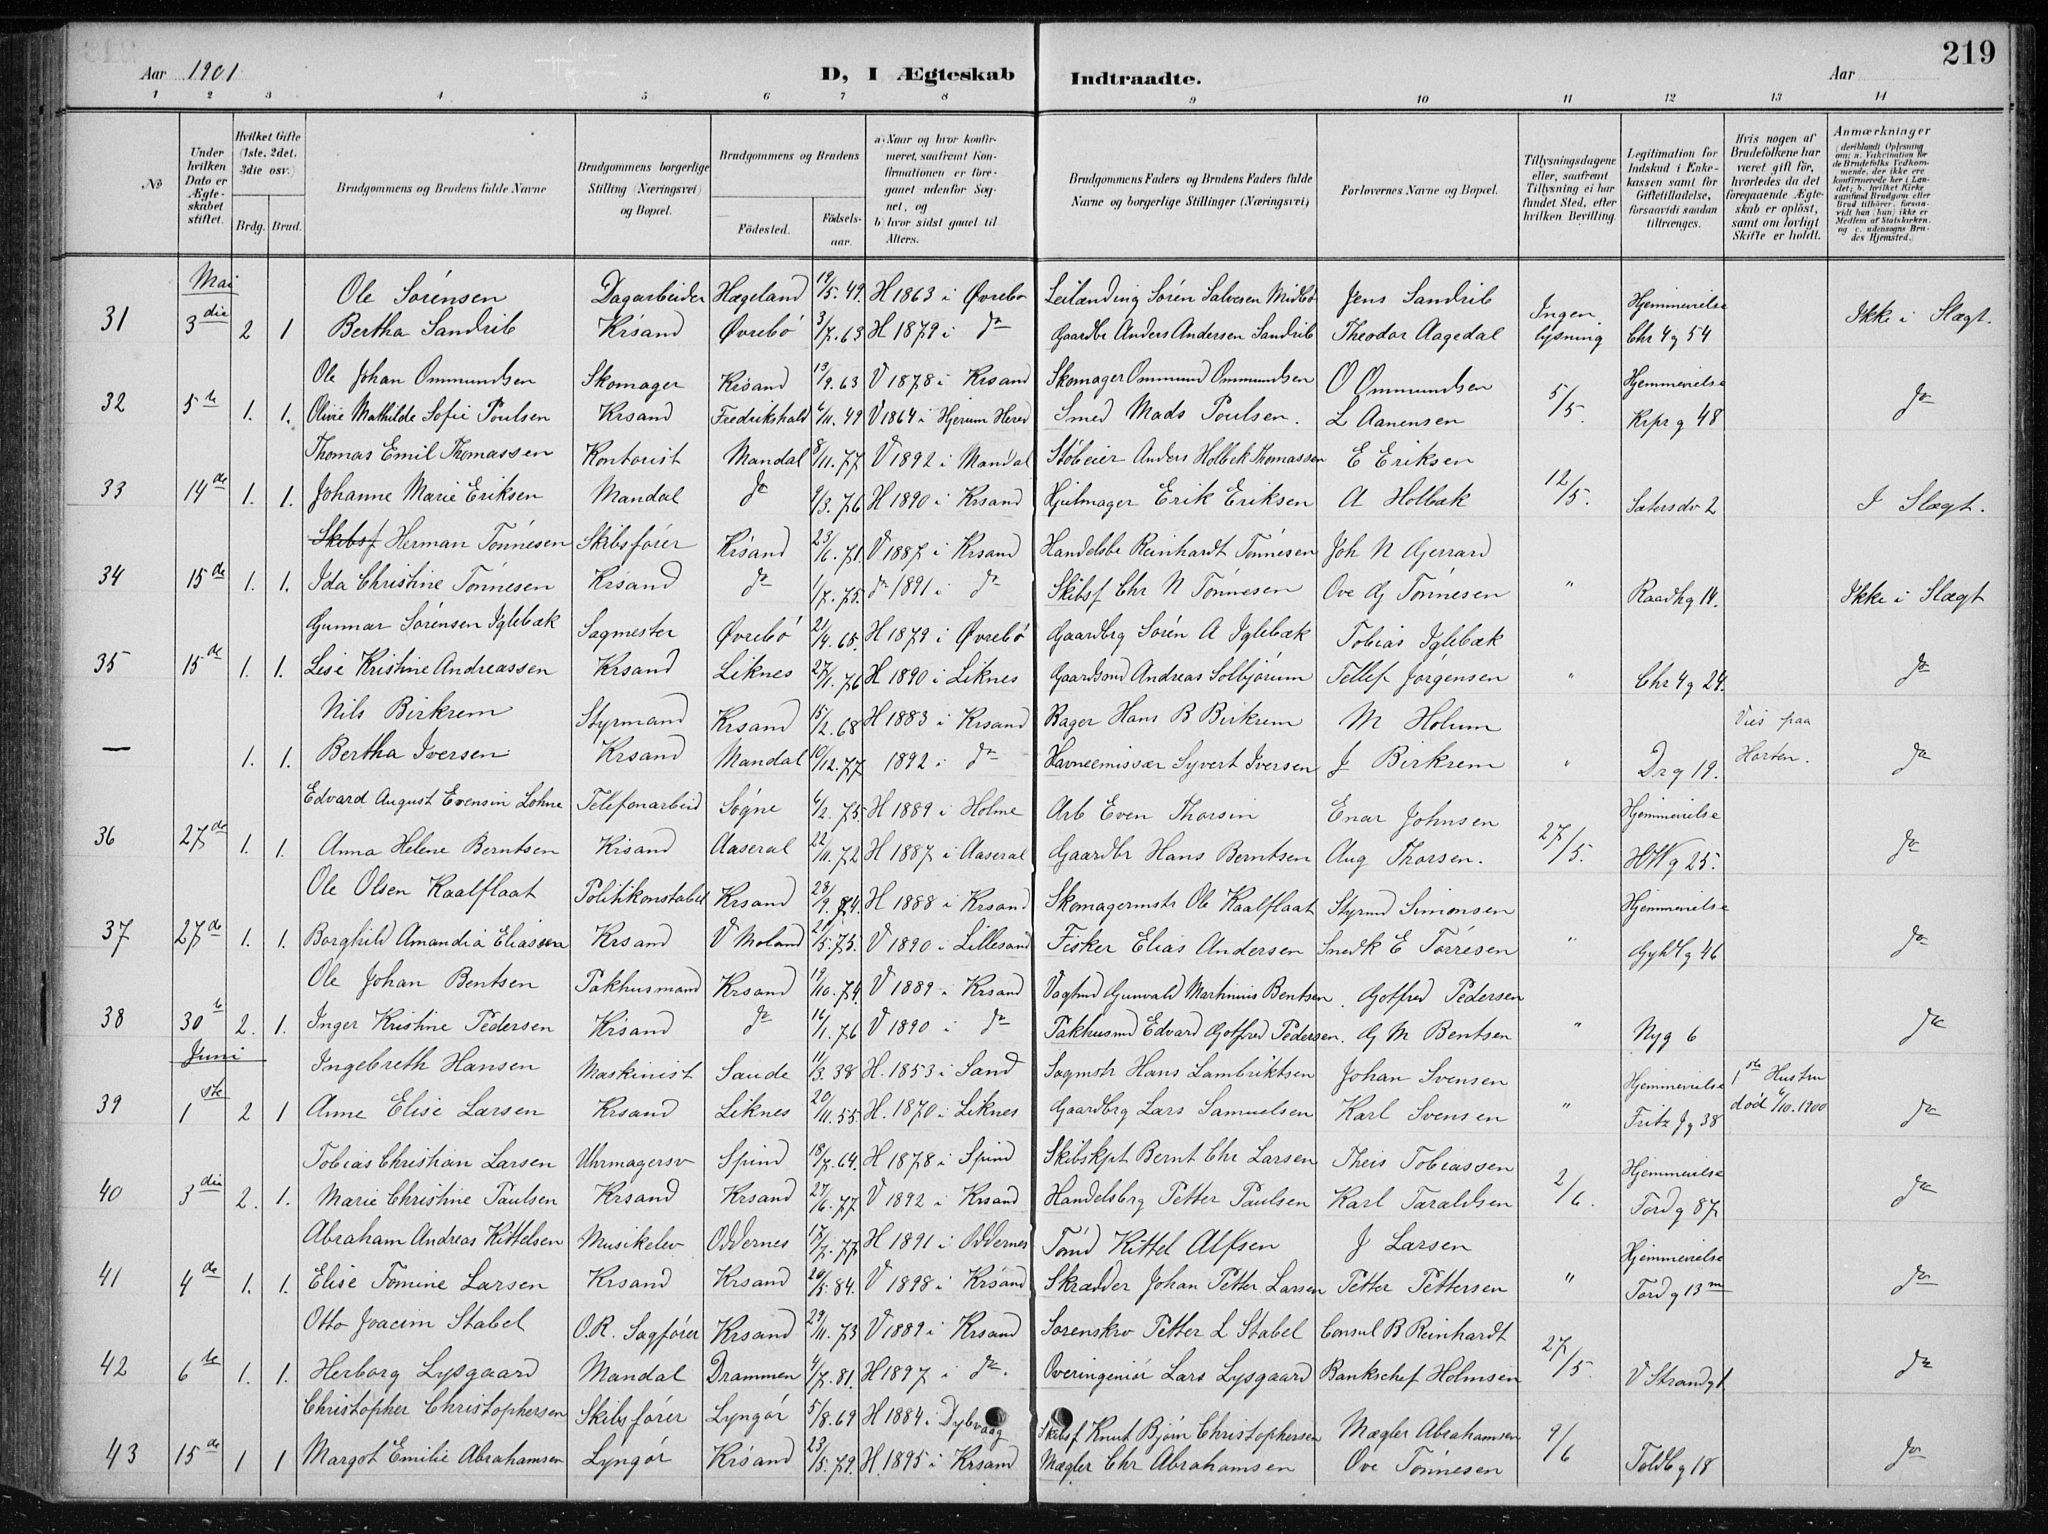 Aar 1901 D, I Ægteskab Indtraadte. Aar 219
1 2 3 4 5 6 7 8 9 10 11 12 13 14
No
Under hvilken Dato er Ægteskabet stiftet.
Hvilket Gifte (1ste, 2det, 3die osv.)
Brdg. Brud.
Brudgommens og Brudens fulde Navne
Brudgommens borgerlige Stilling (Næringsvei) og Bopæl.
Brudgommens og Brudens
Fødested. Fødselsaar.
a) Naar og hvor konfirmeret, saafremt Konfirmationen er foregaaet udenfor Sognet, og
b) hvor sidst gaaet til Alters.
Brudgommens Faders og Brudens Faders fulde Navne og borgerlige Stillinger (Næringsvei)
Forlovernes Navne og Bopæl.
Tillysningsdagene eller, saafremt Tillysning ei har fundet Sted, efter hvilken Bevilling.
Legitimation for Indskud i Enkekassen samt for Giftetilladelse, forsaavidt saadan tiltrænges.
Hvis nogen af Brudefolkene har været gift før, hvorledes da det foregaaende Ægteskab er opløst, samt om lovligt Skifte er holdt.
Anmærkninger (deriblandt Oplysning om: a. Vakcination for de Brudefolks Vedkommende, der ikke ere konfirmerede her i Landet; b. hvilket Kirkesamfund Brudgom eller Brud tilhører, forsaavidt han (hun) ikke er Medlem af Statskirken, og c. udensogns Brudes Hjemsted.)
Mai
Ole Sørensen Dagarbeider Hægeland 19/5.49. H 1863 i Øvrebo Leilænding Sören Salvesen Midbø Jens Sandrib Ingen Hjemmevielse
31 3die 2 1 Bertha Sandrib Krsand Øvrebö 3/7.63 H 1879 i do Gaardbr Anders Andersen Sandrib Theodor Aagedal lysning Chr 4 g 54 Ikke i Slægt.
Ole Johan Ommundsen Skomager Krsand 13/9.63 V 1878 i Krsand Skomager Ommund Ommundsen O Ommundsen 5/5 Hjemmevielse
32 5te 1. 1. Olivie Mathilde Sofie Poulsen Krsand Fredrikshald 6/11.49 V 1864 i Hjerum Hered Smed Mads Poulsen. L Aanensen Krpr g 48 do
Thomas Emil Thomassen Kontorist Mandal 8/11.77 V 1892 i Mandal Støbeier Anders Holbek Thomassen E Eriksen 12/5.
33 14de 1. 1. Johanne Marie Eriksen Mandal do 9/3.76 H 1890 i Krsand Hjulmager Erik Eriksen A Holbæk Sætersdv 2 I Slægt.
Skibsf Herman Tönnesen Skibsfører Krsand 23/6.71. V 1887 i Krsand Handelsbr Reinhardt Tönnesen Joh N Gjerrard
34 15de 1. 1. Ida Christine Tönnesen Krsand do 1/7.75. do 1891 i do Skibsf Chr N Tönnesen Ove Gj Tönnesen " Raadhg 14. Ikke i Slægt
Gunnar Sörensen Iglebæk Sagmester Øvrebö 21/4.65. H 1879 i Øvrebö Gaardbrg Sören A Iglebæk Tobias Iglebæk
35 15de 1. 1. Lise Kristine Andreassen Krsand Liknes 27/1.76 H 1890 i Liknes Gaardsmd Andreas Solbjörum Tellef Jörgensen " Chr 4 g 24. do
Nils Birkrem Styrmand Krsand 15/2.68 H 1883 i Krsand Bager Hans B Birkrem M Holum Vies paa
— 1. 1. Bertha Iversen Krsand Mandal 10/12.77 1892 i do Havneemissær Syvert Iversen J Birkrem " Dr g 19. Horten. do
Edvard August Evensen Lohne Telefonarbeid Søgne 6/2.75. H 1889 i Holme Arb Even Thorsen Enar Johnsen 27/5. Hjemmevielse
36 27de 1. 1. Anna Helene Berntsen Krsand Aaseral 22/11.72 H 1887 i Aaseral Gaardbr Hans Berntsen Aug Thorsen. HW g 25. do
Ole Olsen Kaalflaat Politikonstabel Krsand 28/9.74. H 1888 i Krsand Skomagermstr Ole Kaalflaat Styrmd Simonsen Hjemmevielse
37 27de 1. 1. Borghild Amandia Eliassen Krsand V Moland 21/5.75. V 1890 i Lillesand Fisker Elias Andersen Snedk E Torrisen " Gyldl g 46 do
Ole Johan Bentsen Pakhusmand Krsand 19/10.74. V 1889 i Krsand Vagtmd Gunvald Martinius Bentsen. Gotfred Pedersen
38 30te 2. 1. Inger Kristine Pedersen Krsand do 16/1.76 V 1890 i do Pakhusmd Edvard Gotfred Pedersen. G M Bentsen " Nyg 6 do
Juni
Ingebreth Hansen Maskinist Saude 11/3.38 H. 1853 i Sand Sagmstr Hans Lambriktsen Johan Svensen Hjemmevielse 1ste Hustru
39 1ste 2 1 Anne Elise Larsen Krsand Liknes 20/11.55 H. 1870 i Liknes Gaardbrg Lars Samuelsen Karl Svensen " Fritz J g 38 død 6/10.1900 do
Tobias Christian Larsen Uhrmagersv Spind 18/7.64. H 1878 i Spind Skibskpt Bernt Chr Larsen Theis Tobiassen 2/6. Hjemmevielse
40 3die 2. 1. Marie Christine Paulsen Krsand Krsand 27/6.77 V 1892 i Krsand Handelsbrg Petter Paulsen Karl Taraldsen Tord g 87. do
Abraham Andreas Kittelsen Musikelev Oddernes 17/7.77 H 1891 i Oddernes Tømd Kittel Alfsen J Larsen Hjemmevielse
41 4de 1. 1. Elise Tomine Larsen Krsand Krsand 20/5.84. V 1898 i Krsand Skrædder Johan Petter Larsen Petter Pettersen " Tord g 13m do
Otto Joacim Stabel O.R. Sagfører Krsand 29/11.73 V 1889 i Krsand Sorenskrv Petter L Stabel Consul B Reinhardt 27/5.
42 6te 1. 1. Herborg Lysgaard Mandal Drammen 4/7.81. H 1897 i do. Overingeniör Lars Lysgaard Bankschef Holmsen V Strandgt do
Christopher Christophersen Skibsfører Lyngör 5/8.69 H 1884 i Dybvaag Skibsf Knut Bjørn Christophersen Mægler Abrahamsen 9/6
43 15de 1 1 Margot Emilie Abrahamsen Lyngör Krsand 23/5.79. H. 1895 i Krsand Mægler Chr Abrahamsen Ove Tönnesen Toldb g 18 do